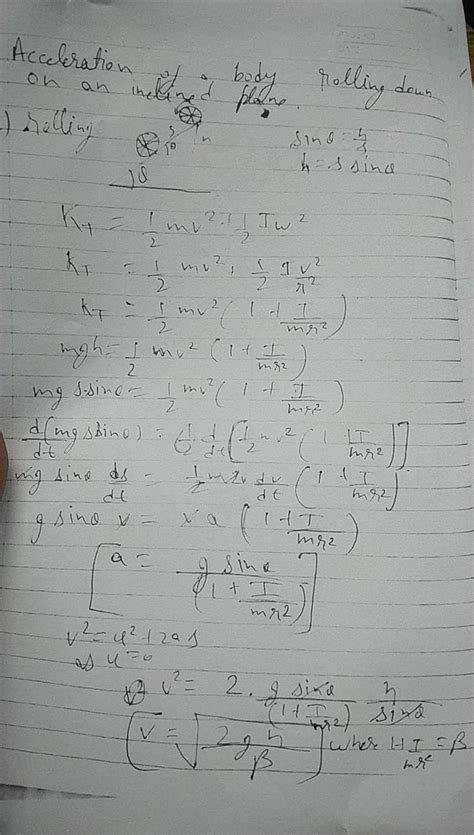 Acceleration of a body rolling down
on an inclined plane.
.) rolling
s
h
θ
θ
sinθ = h/s
h = s sinθ
K_T = 1/2 mv² + 1/2 Iω²
K_T = 1/2 mv² + 1/2 I v²/r²
K_T = 1/2 mv² (1 + I/mr²)
mgh = 1/2 mv² (1 + I/mr²)
mg s sinθ = 1/2 mv² (1 + I/mr²)
d/dt (mg s sinθ) = d/dt [1/2 mv² (1 + I/mr²)]
mg sinθ ds/dt = 1/2 m 2v dv/dt (1 + I/mr²)
g sinθ v = v a (1 + I/mr²)
[a = g sinθ/(1 + I/mr²)]
v² = u² + 2as
as u = 0
v² = 2. g sinθ/(1 + I/mr²) h/sinθ
[v = √(2gh/β)] wher 1+I/mr² = β